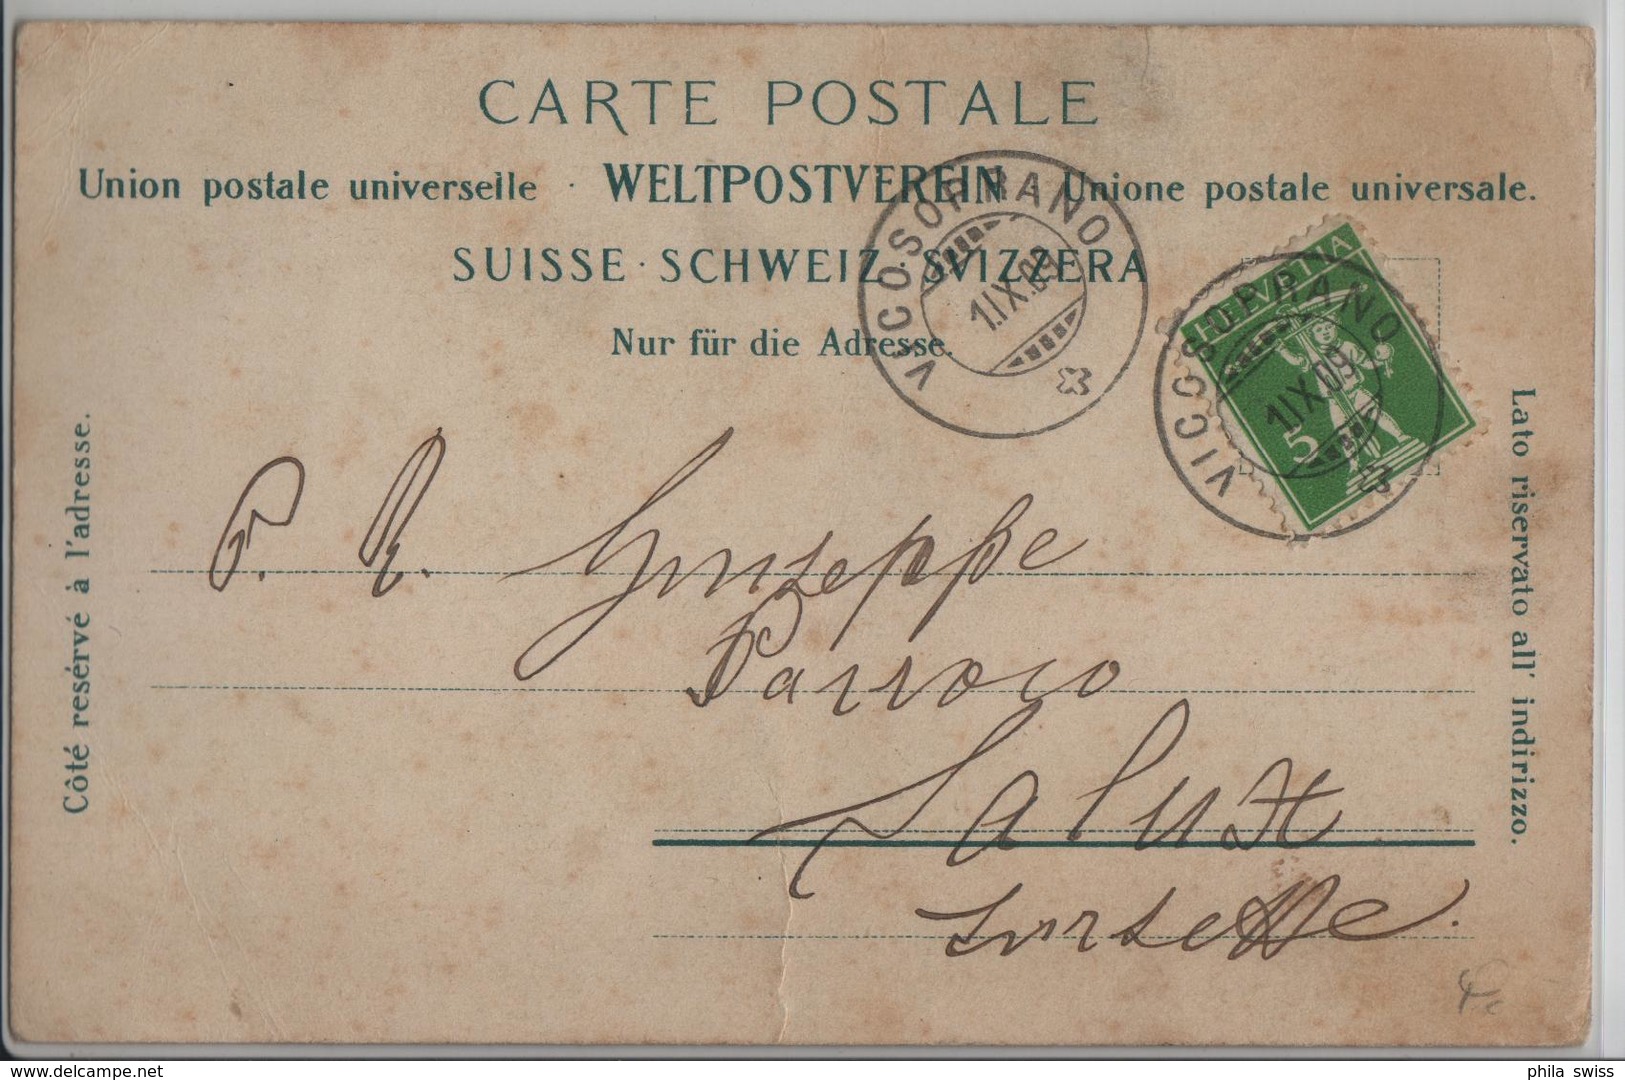 CARTE POSTALE
Union postale universelle · WELTPOSTVEREIN Unione postale universale.
SUISSE · SCHWEIZ · SVIZZERA
Nur für die Adresse.
VICOSOPRANO
1.IX.09
HELVETIA
5
VICOSOPRANO
1.IX.09
Côté resérvé à l'adresse.
Lato riservato all' indirizzo.
P. R. Giuseppe
Parroco
Salux
delcampe.net
phila swiss